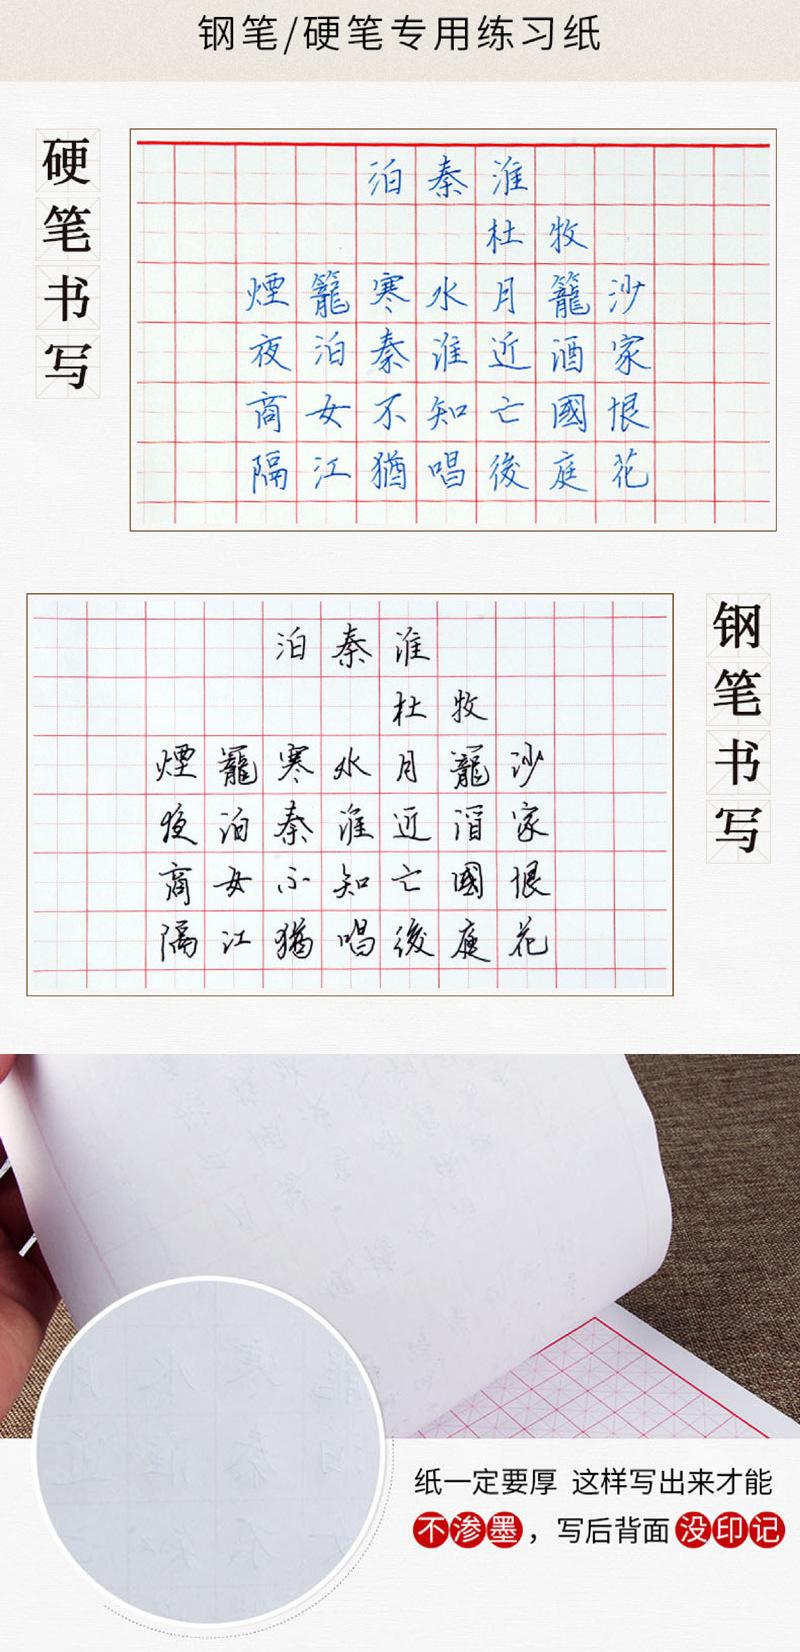 钢笔/硬笔专用练习纸
硬笔书写
泊秦淮
杜牧
煙籠寒水月籠沙
夜泊秦淮近酒家
商女不知亡國恨
隔江猶唱後庭花
钢笔书写
泊秦淮
杜牧
煙籠寒水月籠沙
夜泊秦淮近酒家
商女不知亡國恨
隔江猶唱後庭花
纸一定要厚 这样写出来才能
不渗墨，写后背面没印记